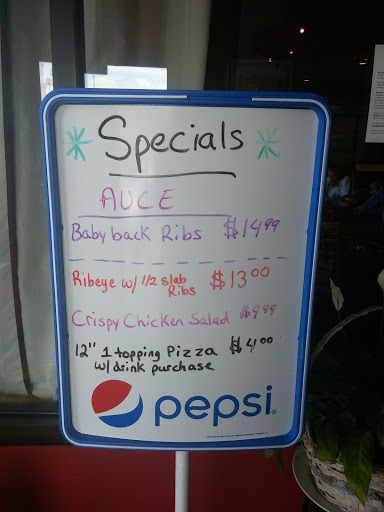 Specials
AUCE
Baby back Ribs $14.99
Ribeye w/ 1/2 slab Ribs $13.00
Crispy Chicken Salad $9.99
12" 1 topping Pizza $4.00
w/ drink purchase
pepsi